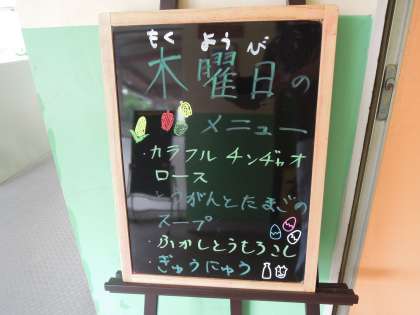 もくようび
木曜日の
メニュー
・カラフルチンヂャオ
ロース
・とうがんとたまごの
スープ
・ふかしとうもろこし
・ぎゅうにゅう